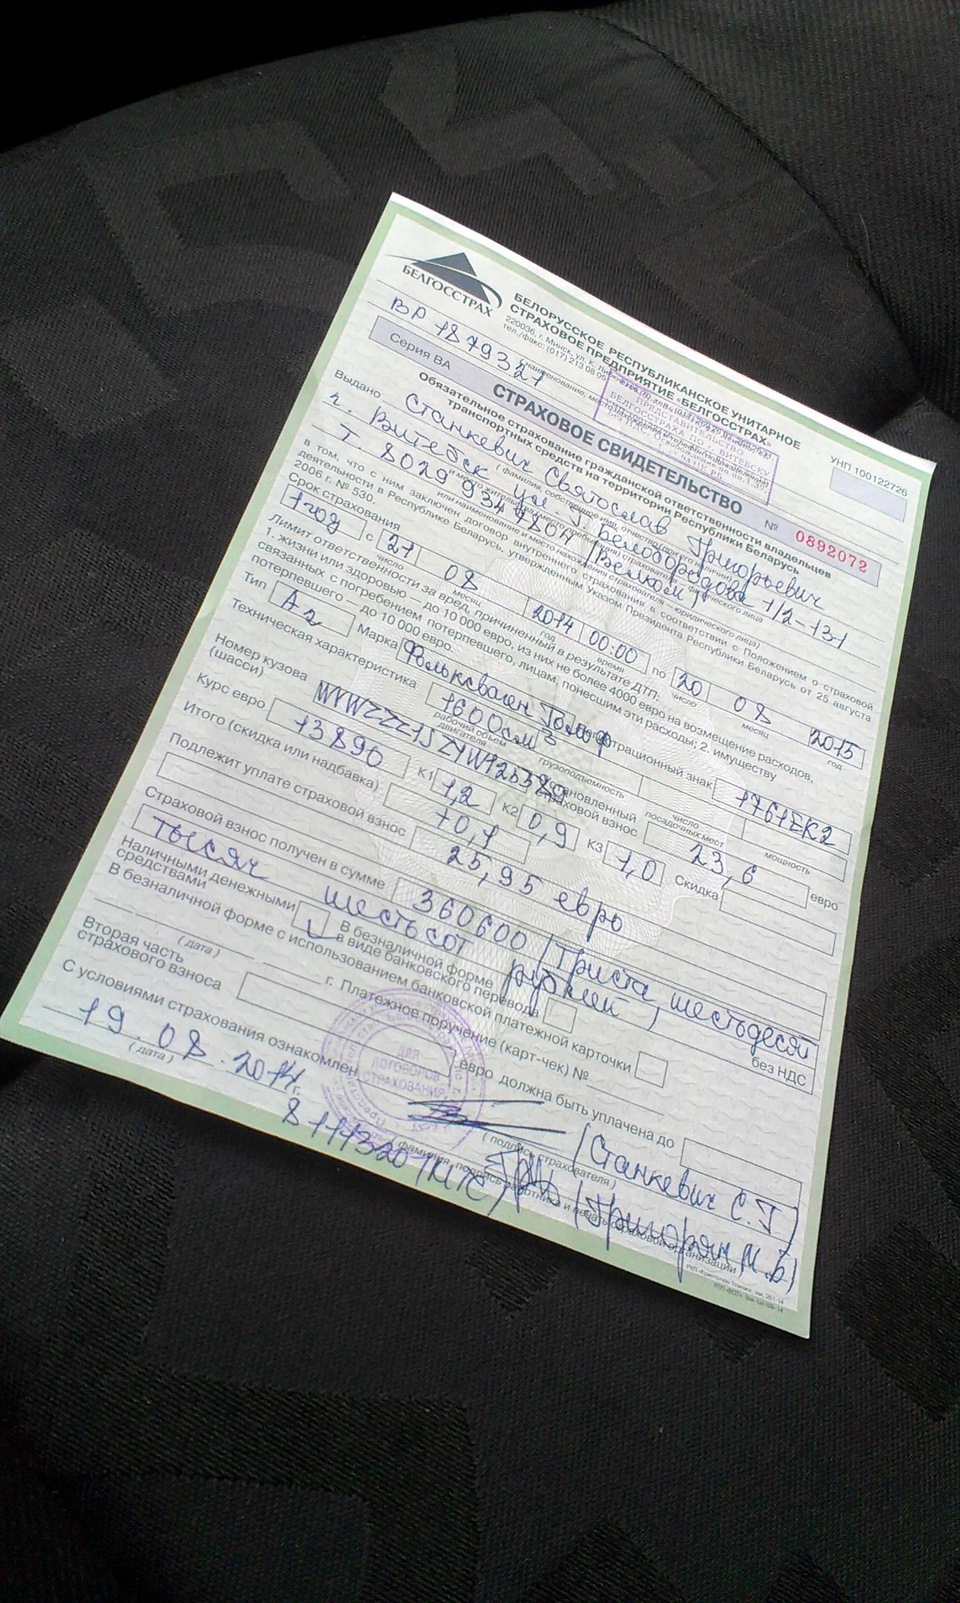 БЕЛГОССТРАХ
БЕЛОРУССКОЕ РЕСПУБЛИКАНСКОЕ УНИТАРНОЕ
СТРАХОВОЕ ПРЕДПРИЯТИЕ «БЕЛГОССТРАХ»
220036, г. Минск, ул. К.
тел./факс: (017) 213 08 05
УНП 100122726
ВР 1879321
Серия ВА СТРАХОВОЕ СВИДЕТЕЛЬСТВО № 0892072
Обязательное страхование гражданской ответственности владельцев
транспортных средств на территории Республики Беларусь
Выдано Станкевич Святослав Григорьевич
г. Витебск ул. Г. Белобородова 1/2-131
Т 8029 9347804 (Велком)
в том, что с ним заключен договор внутреннего страхования в соответствии с Положением о страховой
деятельности в Республике Беларусь, утвержденным Указом Президента Республики Беларусь от 25 августа
2006 г. № 530.
Срок страхования
1 год с 21 08 2014 00:00 по 20 08 2015
число месяц год время число месяц год
Лимит ответственности за вред, причиненный в результате ДТП:
1. жизни или здоровью – до 10 000 евро, из них не более 4000 евро на возмещение расходов,
связанных с погребением потерпевшего, лицам, понесшим эти расходы; 2. имуществу
потерпевшего – до 10 000 евро.
Тип А2 Марка Фольксваген Гольф Регистрационный знак 1761ЕК2
Техническая характеристика 1600см3
рабочий объем двигателя грузоподъемность число посадочных мест мощность
Номер кузова
(шасси)
Установленный страховой взнос 23,6 евро
Курс евро 13890 К1 1,2 К2 0,9 К3 1,0 Скидка
Итого (скидка или надбавка):
Подлежит уплате страховой взнос 25,95 евро
Страховой взнос получен в сумме 360600 (Триста шестьдесят
тысяч шестьсот рублей) без НДС
Наличными денежными
средствами
В безналичной форме
в виде банковского перевода
В безналичной форме с использованием банковской платежной карточки
(дата) г. Платежное поручение (карт-чек) №
Вторая часть
страхового взноса евро должна быть уплачена до
С условиями страхования ознакомлен
(подпись страхователя) (Станкевич С.Г)
19.08.2014г.
(дата)
ДЛЯ
ДОГОВОРОВ
СТРАХОВАНИЯ
(Григорян М.Б)